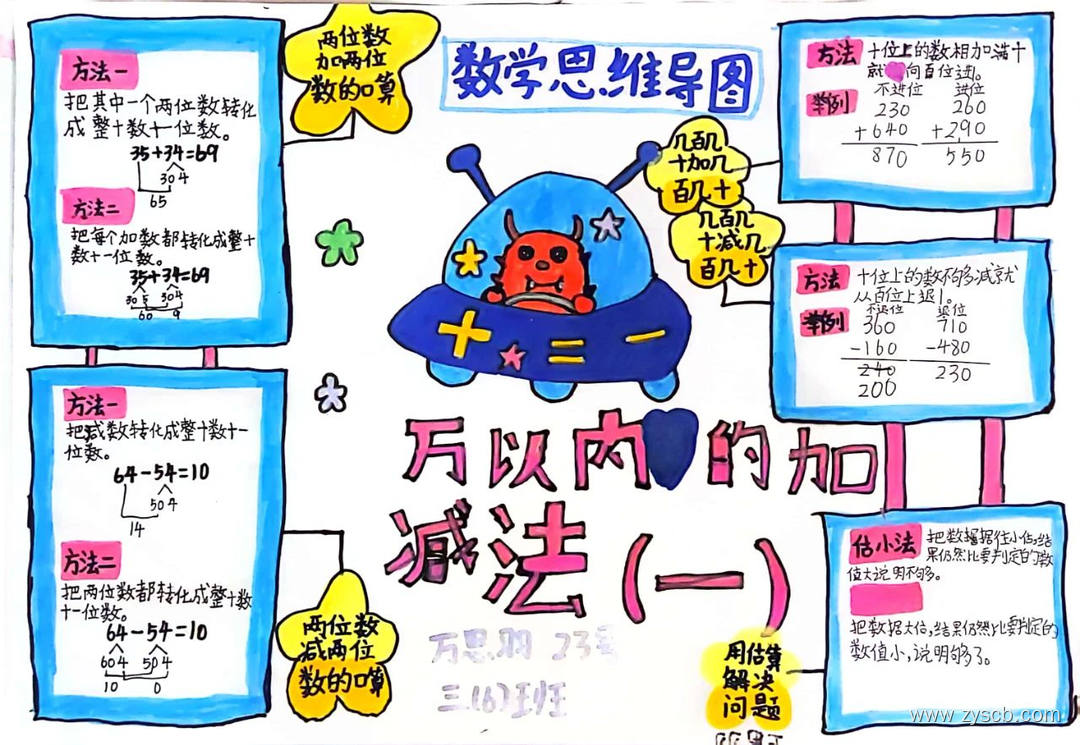 数学思维导图
两位数
加两位
数的口算
方法一
把其中一个两位数转化
成整十数十一位数。
35+34=69
30 4
65
方法二
把每个加数都转化成整十
数十一位数。
35+34=69
30 5 30 4
60 9
方法一
把减数转化成整十数十一
位数。
64-54=10
50 4
14
方法二
把两位数都转化成整十数
十一位数。
64-54=10
60 4 50 4
10 0
两位数
减两位
数的口算
几百几
十加几
百几十
方法
十位上的数相加满十
就向百位进1。
举例
不进位 进位
230 260
+640 +290
870 550
几百几
十减几
百几十
方法
十位上的数不够减就
从百位上退1。
举例
不退位 退位
360 710
-160 -480
240 230
200
+ = -
万以内的加
减法(一)
万思羽 23号
三(6)班
估小法
把数据据往小估,结
果仍然比要判定的数
值大说明不够。
把数据大估,结果仍然比要判定的
数值小,说明够了。
用估算
解决
问题
www.zyscb.com